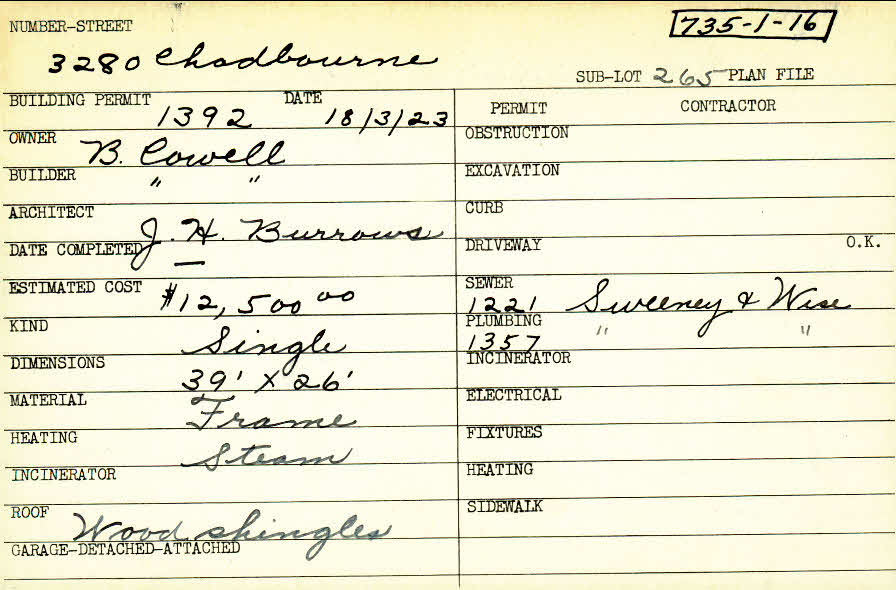 NUMBER-STREET
735-1-16
3280 Chadbourne
SUB-LOT 265 PLAN FILE
BUILDING PERMIT 1392 DATE 18/3/23
OWNER B. Cowell
BUILDER " "
ARCHITECT J. H. Burrows
DATE COMPLETED —
ESTIMATED COST $12,500 00
KIND Single
DIMENSIONS 39' X 26'
MATERIAL Frame
HEATING Steam
INCINERATOR
ROOF Wood shingles
GARAGE-DETACHED-ATTACHED
PERMIT CONTRACTOR
OBSTRUCTION
EXCAVATION
CURB
DRIVEWAY O.K.
SEWER
1221 Sweeney & Wise
PLUMBING " "
1357
INCINERATOR
ELECTRICAL
FIXTURES
HEATING
SIDEWALK